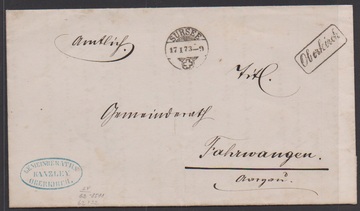 Amtlich.
SURSEE
17 I 73-9
Oberkirch
Titl.
Gemeinderath
Fahrwangen.
Aargau.
GEMEINDERATHS
KANZLEI
OBERKIRCH.